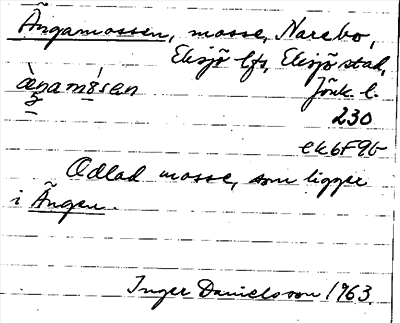 Ängamossen, mosse, Narebo,
Eksjö lfs, Eksjö stad,
Jönk. l.
230
ek6F9b
Odlad mosse, som ligger
i Ängen.
Inger Danielsson 1963.